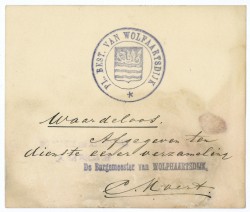 PL. BEST. VAN WOLFAARTSDIJK
Waardeloos.
Afgegeven ten
dienste eener verzameling
De Burgemeester van WOLPHAARTSDIJK,